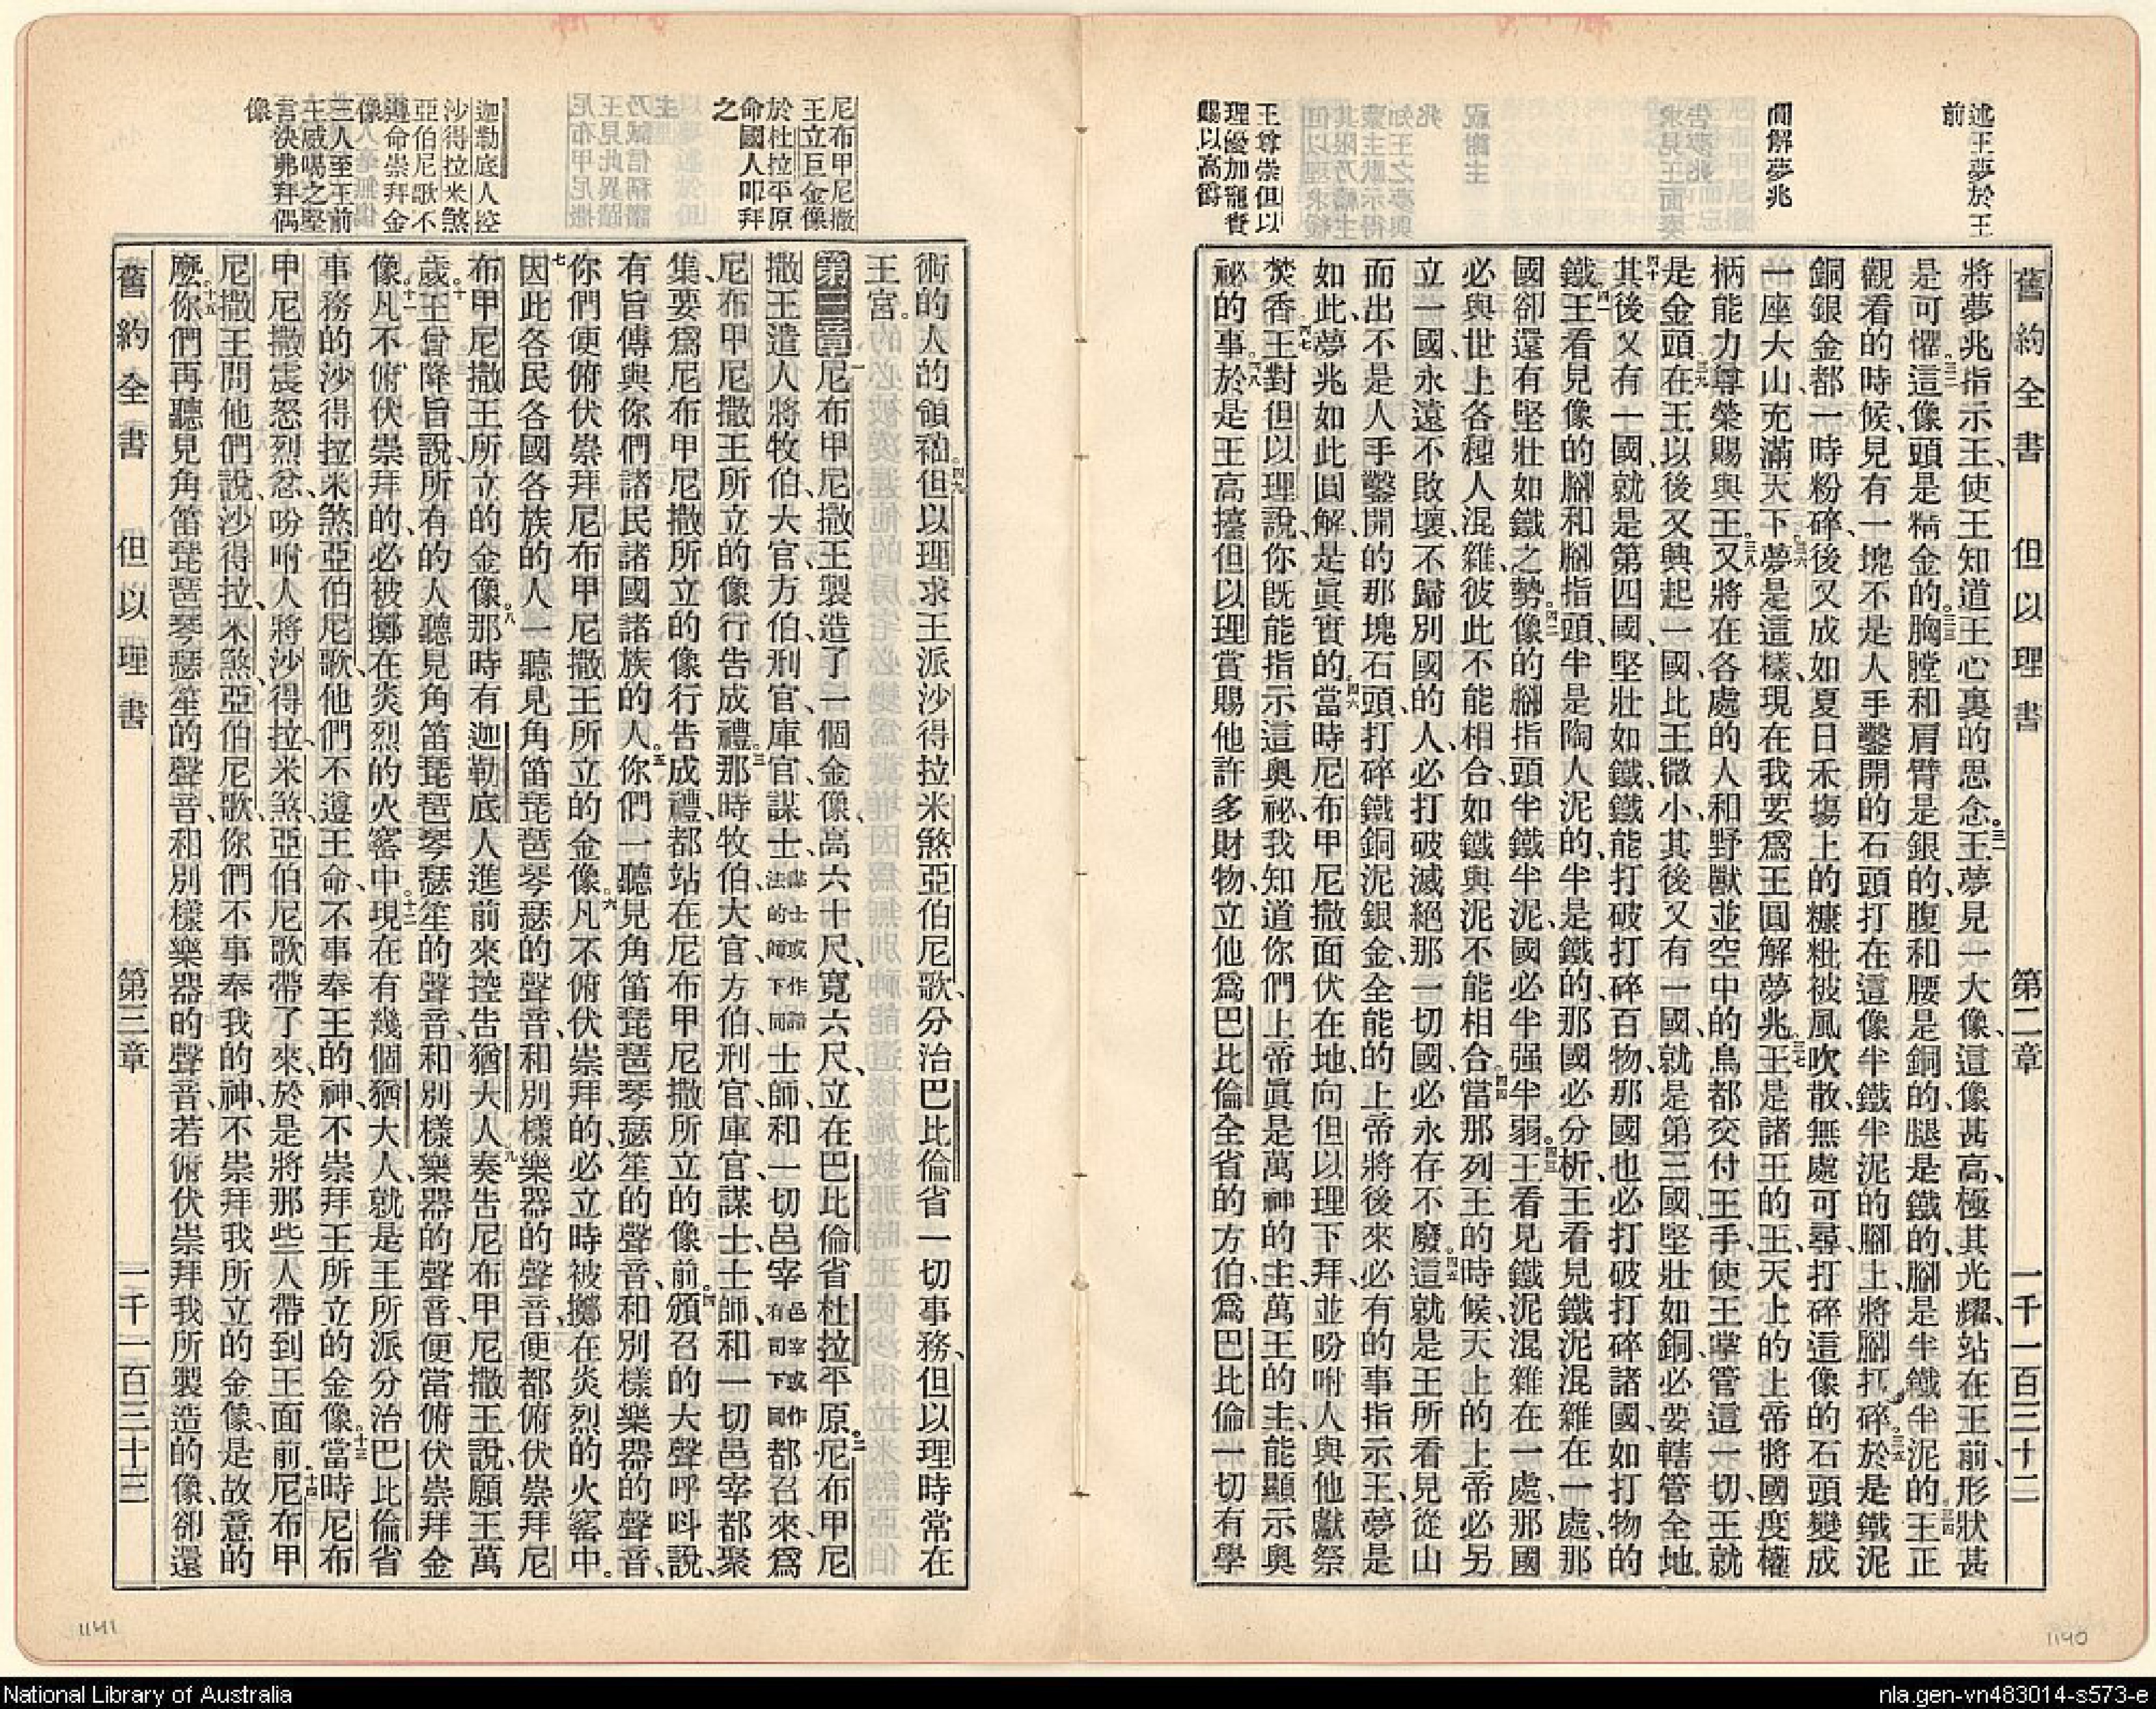 舊約全書 但以理書 第二章 一千一百三十二
述王夢於王
前
圓解夢兆
王尊崇但以
理優加寵賚
賜以高爵
將夢兆指示王、使王知道王心裏的思念。三一王夢見一大像、這像甚高、極其光耀、站在王前、形狀甚
是可懼。三二這像頭是精金的、胸膛和肩臂是銀的、腹和腰是銅的、三三腿是鐵的、腳是半鐵半泥的。三四王正
觀看的時候、見有一塊不是人手鑿開的石頭打在這像半鐵半泥的腳上、將腳打碎。三五於是鐵泥
銅銀金都一時粉碎、後又成如夏日禾塲上的糠粃被風吹散、無處可尋、打碎這像的石頭變成
一座大山、充滿天下。三六夢是這樣、現在我要爲王圓解夢兆。三七王是諸王的王、天上的上帝將國度權
柄能力尊榮賜與王。三八又將在各處的人和野獸並空中的鳥都交付王手、使王掌管這一切、王就
是金頭。三九在王以後又興起一國、比王微小、其後又有一國、就是第三國、堅壯如銅、必要轄管全地。
四十其後又有一國、就是第四國、堅壯如鐵、鐵能打破打碎百物、那國也必打破打碎諸國、如打物的
鐵。四一王看見像的腳和腳指頭、半是陶人泥的、半是鐵的、那國必分析、王看見鐵泥混雜在一處、那
國卻還有堅壯如鐵之勢。四二像的腳指頭半鐵半泥、國必半强半弱。四三王看見鐵泥混雜在一處、那國
必與世上各種人混雜、彼此不能相合、如鐵與泥不能相合。四四當那列王的時候、天上的上帝必另
立一國、永遠不敗壞、不歸別國的人、必打破滅絕那一切國、必永存不廢。四五這就是王所看見從山
而出、不是人手鑿開的那塊石頭、打碎鐵銅泥銀金、全能的上帝將後來必有的事指示王、夢是
如此、夢兆如此圓解、是眞實的。四六當時尼布甲尼撒面伏在地、向但以理下拜、並吩咐人與他獻祭
焚香。四七王對但以理說、你旣能指示這奧祕、我知道你們上帝眞是萬神的主、萬王的主、能顯示奧
祕的事。四八於是王高擡但以理、賞賜他許多財物、立他爲巴比倫全省的方伯、爲巴比倫一切有學
尼布甲尼撒
王立巨金像
於杜拉平原
命國人叩拜
之
迦勒底人控
沙得拉米煞
亞伯尼歌不
遵命崇拜金
像
三人至王前
王威喝之堅
言決弗拜偶
像
術的人的領袖。四九但以理求王派沙得拉米煞亞伯尼歌、分治巴比倫省一切事務、但以理時常在
王宮。
第三章 一尼布甲尼撒王製造了一個金像、高六十尺、寬六尺、立在巴比倫省杜拉平原。二尼布甲尼
撒王遣人將牧伯、大官、方伯、刑官、庫官、謀士、謀士或作諳法的師下同士師、和一切邑宰邑宰或作有司下同都召來、爲
尼布甲尼撒王所立的像行告成禮。三那時牧伯、大官、方伯、刑官、庫官、謀士、士師、和一切邑宰都聚
集、要爲尼布甲尼撒所立的像行告成禮、都站在尼布甲尼撒所立的像前。四頒召的大聲呼呌說、
有旨傳與你們諸民諸國諸族的人。五你們一聽見角笛琵琶琴瑟笙的聲音、和別樣樂器的聲音、
你們便俯伏崇拜尼布甲尼撒王所立的金像。六凡不俯伏崇拜的、必立時被擲在炎烈的火窰中。
七因此各民各國各族的人一聽見角笛琵琶琴瑟的聲音、和別樣樂器的聲音、便都俯伏崇拜尼
布甲尼撒王所立的金像。八那時有迦勒底人進前來控告猶大人。九奏告尼布甲尼撒王說、願王萬
歲。十王曾降旨說、所有的人聽見角笛琵琶琴瑟笙的聲音、和別樣樂器的聲音、便當俯伏崇拜金
像。十一凡不俯伏崇拜的、必被擲在炎烈的火窰中。十二現在有幾個猶大人、就是王所派分治巴比倫省
事務的沙得拉米煞、亞伯尼歌、他們不遵王命、不事奉王的神、不崇拜王所立的金像。十三當時尼布
甲尼撒震怒烈忿、吩咐人將沙得拉、米煞、亞伯尼歌帶了來、於是將那些人帶到王面前。十四尼布甲
尼撒王問他們說、沙得拉、米煞、亞伯尼歌、你們不事奉我的神、不崇拜我所立的金像、是故意的
麼。十五你們再聽見角笛琵琶琴瑟笙的聲音、和別樣樂器的聲音、若俯伏崇拜我所製造的像、卻還
舊約全書 但以理書 第三章 一千一百三十三
1141
1140
National Library of Australia
nla.gen-vn483014-s573-e